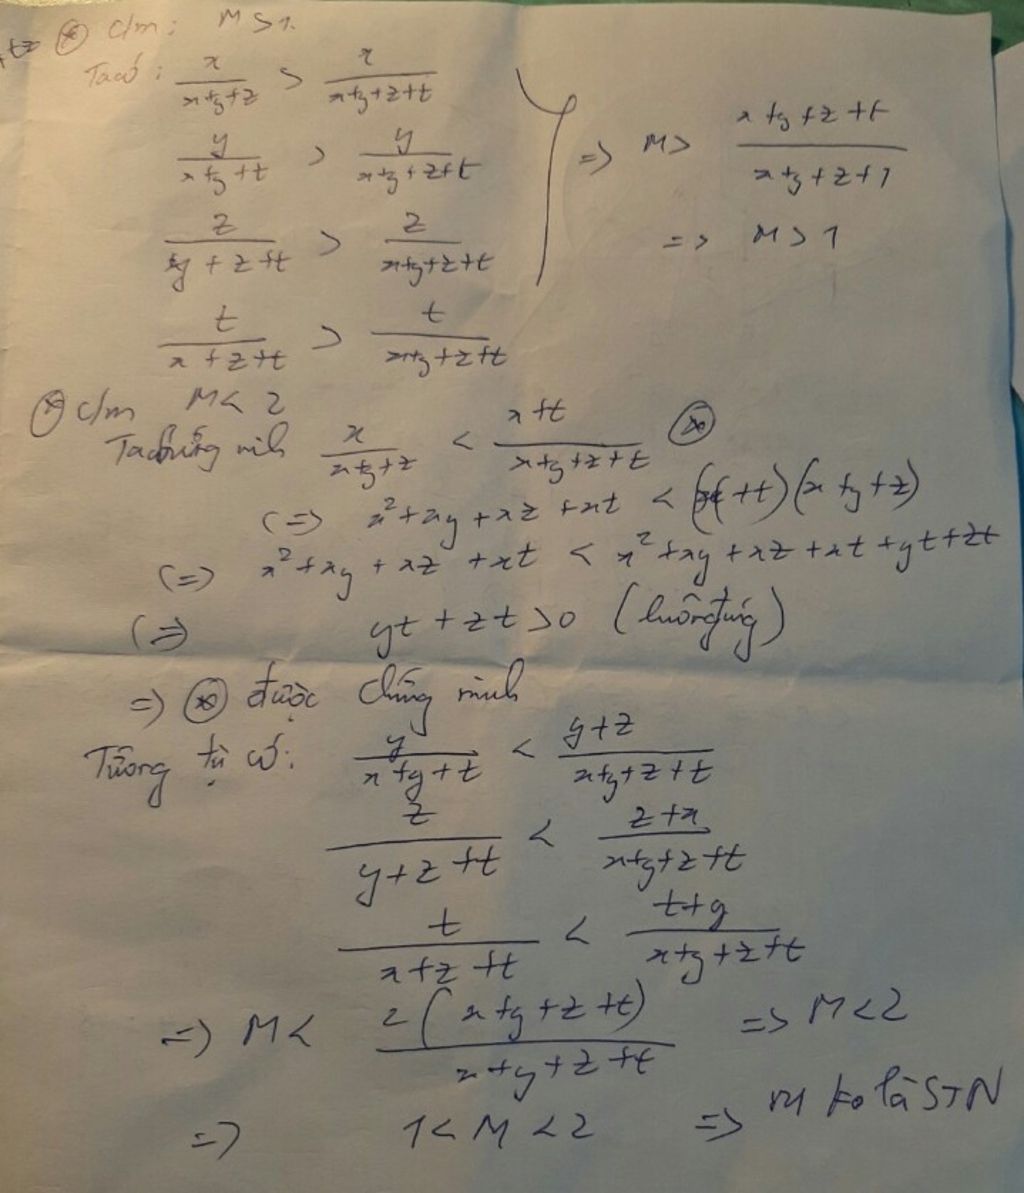 ⊛ c/m: M > 1.
Ta có: x/(x+y+z) > x/(x+y+z+t)
y/(x+y+t) > y/(x+y+z+t)
=> M > (x+y+z+t)/(x+y+z+1)
z/(y+z+t) > z/(x+y+z+t)
=> M > 1
t/(x+z+t) > t/(x+y+z+t)
⊛ c/m M < 2
Ta chứng minh x/(x+y+z) < (x+t)/(x+y+z+t) ⊛
(=> x²+xy+xz+xt < (x+t)(x+y+z)
(=> x²+xy+xz+xt < x²+xy+xz+xt+yt+zt
(=> yt+zt > 0 (luôn đúng)
=> ⊛ được chứng minh
Tương tự có: y/(x+y+t) < (y+z)/(x+y+z+t)
z/(y+z+t) < (z+x)/(x+y+z+t)
t/(x+z+t) < (t+y)/(x+y+z+t)
=> M < 2(x+y+z+t)/(x+y+z+t) => M < 2
=> 1 < M < 2 => M ko là STN